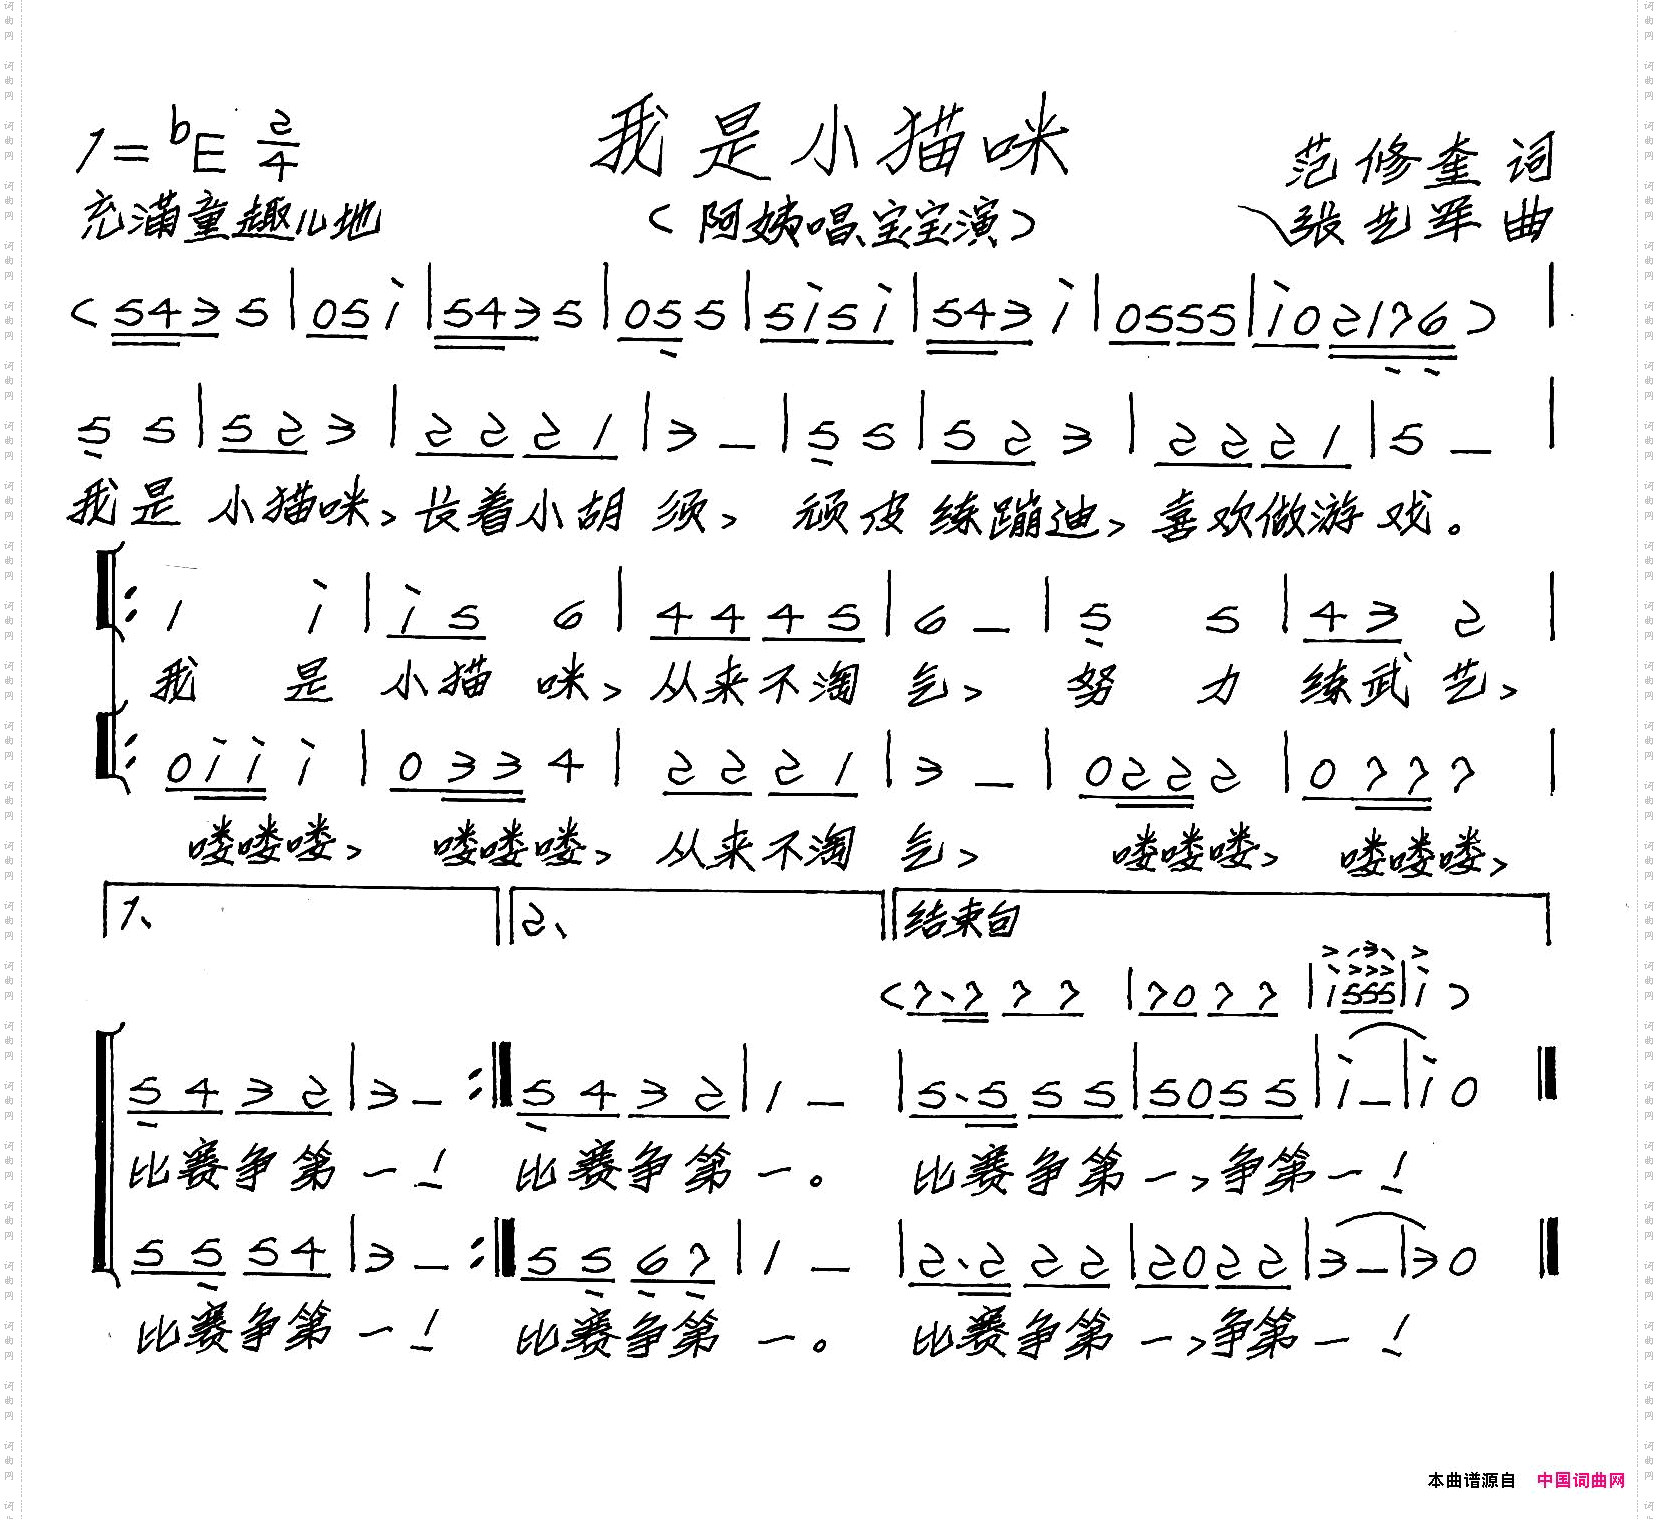 我是小猫咪
1=♭E 2/4
范修奎 词
充满童趣儿地
（阿姨唱、宝宝演）
张艺军 曲
( 5 4 3 5 | 0 5 i | 5 4 3 5 | 0 5 5 | 5 i 5 i | 5 4 3 i | 0 5 5 5 | i 0 2 1 7 6 ) |
5 5 | 5 2 3 | 2 2 2 1 | 3 — | 5 5 | 5 2 3 | 2 2 2 1 | 5 — |
我是 小猫咪，长着小胡须，顽皮练蹦迪，喜欢做游戏。
1 i | i 5 6 | 4 4 4 5 | 6 — | 5 5 | 4 3 2 |
我是小猫咪，从来不淘气，努力练武艺，
0 i i i | 0 3 3 4 | 2 2 2 1 | 3 — | 0 2 2 2 | 0 7 7 7 |
喽喽喽，喽喽喽，从来不淘气，喽喽喽，喽喽喽，
1、 2、 结束句
( 7·7 7 7 | 7 0 7 7 | i 5 5 5 | i )
5 4 3 2 | 3 — :‖ 5 4 3 2 | 1 — | 5·5 5 5 | 5 0 5 5 | i — | i 0 ‖
比赛争第一！ 比赛争第一。 比赛争第一，争第一！
5 5 5 4 | 3 — :‖ 5 5 6 7 | 1 — | 2·2 2 2 | 2 0 2 2 | 3 — | 3 0 ‖
比赛争第一！ 比赛争第一。 比赛争第一，争第一！
本曲谱源自 中国词曲网